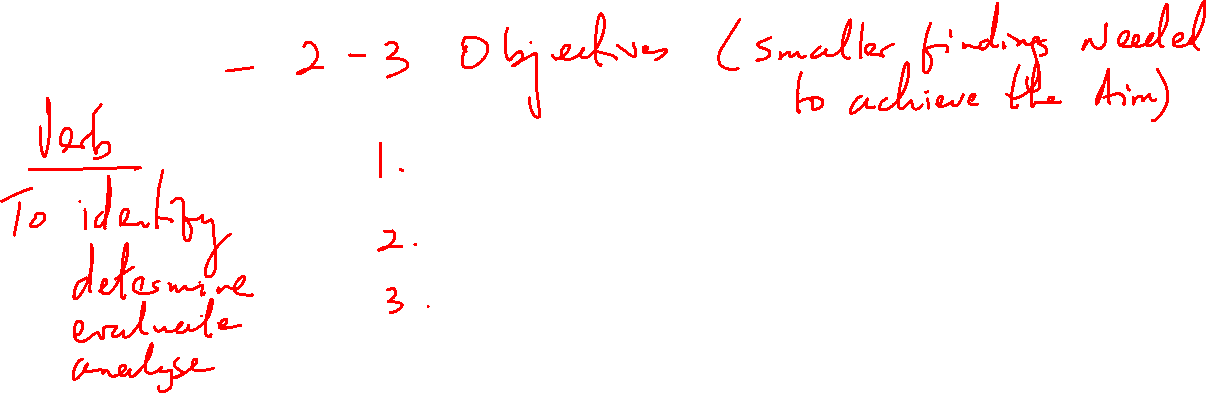 - 2-3 Objectives (smaller findings Needed
to achieve the Aim)
Verb
To identify
determine
evaluate
analyse
1.
2.
3.